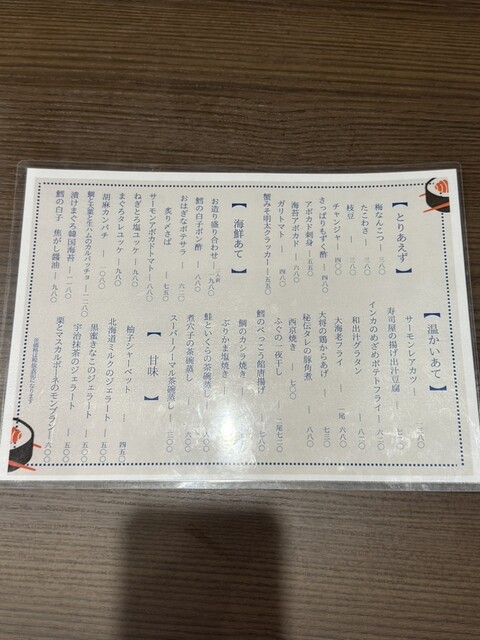 【とりあえず】
梅なんこつ ― 三八〇
たこわさ ― 三八〇
枝豆 ― 三八〇
チャンジャー ― 四八〇
さっぱりもずく酢 ― 四八〇
アボカド刺身 ― 五五〇
海苔アボカド ― 六八〇
ガリトマト ― 四八〇
蟹みそ明太クラッカー ― 五八〇
【海鮮あて】
お造り盛り合わせ
鱈の白子ポン酢 ― 八八〇
おはぎなポテサラ ― 六二〇
炙り〆さば ― 七五〇
サーモンアボカドトマト ― 八八〇
ねぎとろ塩ユッケ ― 九八〇
まぐろタレユッケ ― 九八〇
胡麻カンパチ ― 一〇八〇
鯛と大葉と生ハムのカルパッチョ ― 一二八〇
漬けまぐろ韓国海苔 ― 一二八〇
鱈の白子 焦がし醤油 ― 九八〇
【温かいあて】
サーモンレアカツ ―
寿司屋の揚げ出汁豆腐 ―
インカのめざめポテトフライ ― 六二〇
和出汁グラタン ― 八二〇
大海老フライ 一尾 六八〇
大将の鶏からあげ ― 七三〇
秘伝タレの豚角煮 ― 八八〇
西京焼き ― 七八〇
ふぐの一夜干し 二尾 七二〇
鱈のべっこう餡唐揚げ ― 七八〇
鯛のカシラ焼き ―
ぶりかま塩焼き ―
鮭といくらの茶碗蒸し ―
煮穴子の茶碗蒸し ― 六〇〇
スーパーノーマル茶碗蒸し ― 三〇〇
【甘味】
柚子シャーベット ― 四五〇
北海道ミルクのジェラート ― 五〇〇
黒蜜きなこのジェラート ― 五〇〇
宇治抹茶のジェラート ― 五〇〇
栗とマスカルポーネのモンブラン ― 六〇〇